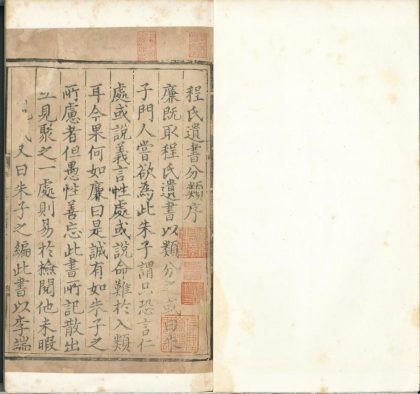 程氏遺書分類序
廉既取程氏遺書以類分之或曰朱
子門人嘗欲為此朱子謂只恐言仁
處或說義言性處或說命難於入類
耳今果何如廉曰是誠有如朱子之
所慮者但愚性善忘此書所記散出
互見聚之一處則易於檢閱他未暇
又曰朱子之編此書以李端